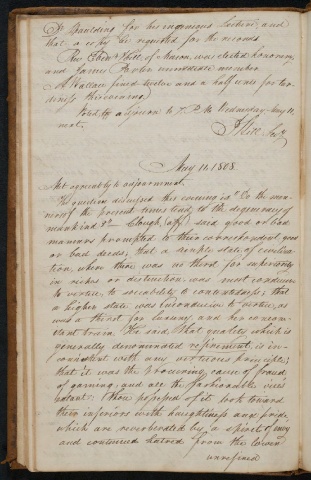 Dr Spaulding for his ingenious Lecture, and
that a copy be requested for the records
Rev. Ebenr Hill, of Mason, was elected honorary
and James Porter immediate member
A Wallace fined twelve and a half cents for tar-
diness this evening
Voted to adjourn to 7. P. M. Wednesday May 11.
next.
May 11. 1808.
Met agreeably to adjournment.
The question discussed this evening is "Do the man-
ners of the present times tend to the degeneracy of
mankind?" Clough, (aff) said good or bad
manners prompted to their correspondent good
or bad deeds; that a simple state of civiliza-
tion, where there was no thirst for superiority
in riches or distinction was most conducive
to virtue, to sociability & contentment; that
a higher state was unconducive to virtue, as
was a thirst for luxury and her concom-
itant train. He said that quality which is
generally denominated refinement, is in-
consistent with any virtuous principle;
that it was the procuring cause of fraud
of gaming, and all the fashionable vices
extant. Those possessed of it look toward
their inferiors with haughtiness and pride,
which are reverberated by a spirit of envy
and continued hatred from the lower
unrefined